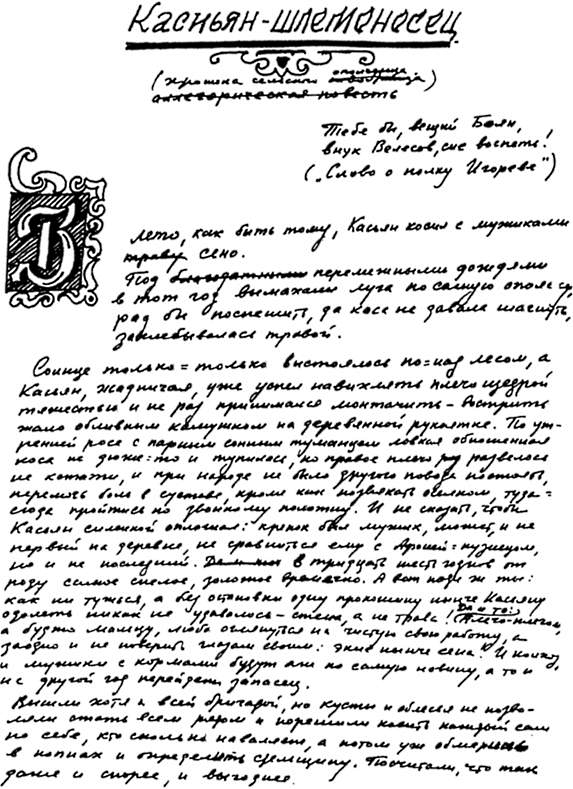 Касьян-шлемоносец
(хроника сельского ополченца)
аллегорическая повесть
Тебе бы, вещий Боян,
внук Велесов, сие воспеть!
(„Слово о полку Игореве")
В
лето, как быть тому, Касьян косил с мужиками
траву сено.
Под благодатными перемежными дождями
в тот год вымахали луга по самую опояску,
рад бы поспешить, да коса не давала шагнуть,
захлебывалась травой.
Солнце только=только выстоялось по=над лесом, а
Касьян, жадничая, уже успел навихлять плечо щедрой
тяжестью и не раз принимался монтачить - вострить
жало обливным камушком на деревянной рукоятке. По ут-
ренней росе с парким сонным туманцем ловкая обношенная
коса не дюже=то и тупилась, но правое плечо разболелось
не кстати, и при народе не было другого повода постоять,
перемочь боль в суставе, кроме как позвякать оселком, туда=
сюда пройтись по звонкому полотну. И не сказать, чтобы
Касьян силенкой оплошал: крепок был мужик, может, и не
первый на деревне, не сравниться ему с Арошей=кузнецом,
но и не последний. в тридцать шесть годив от
роду самое спелое, золотое времечко. А вот поди ж ты:
как ни тужься, а без остановки одну прокошину нынче Касьяну
одолеть никак не удавалось - стена, а не трава! Да и то:
а будто молицу, любо оглянуться на чистую свою работу, а
заодно и не поверить глазам своим: экие нынче сена! И коню,
и мужики с кормами будут аж по самую новину, а то и
на другой год перейдет запасец.
Вышли хотя и всей бригадой, но кусты и облесья не позво-
ляли стать всем рядом и порешили косить каждый сам
по себе, кто сколько наваляет, а потом уже обмерить
в копнах и определить сдельщину. Посчитали, что так
даже и спорее, и выгоднее.